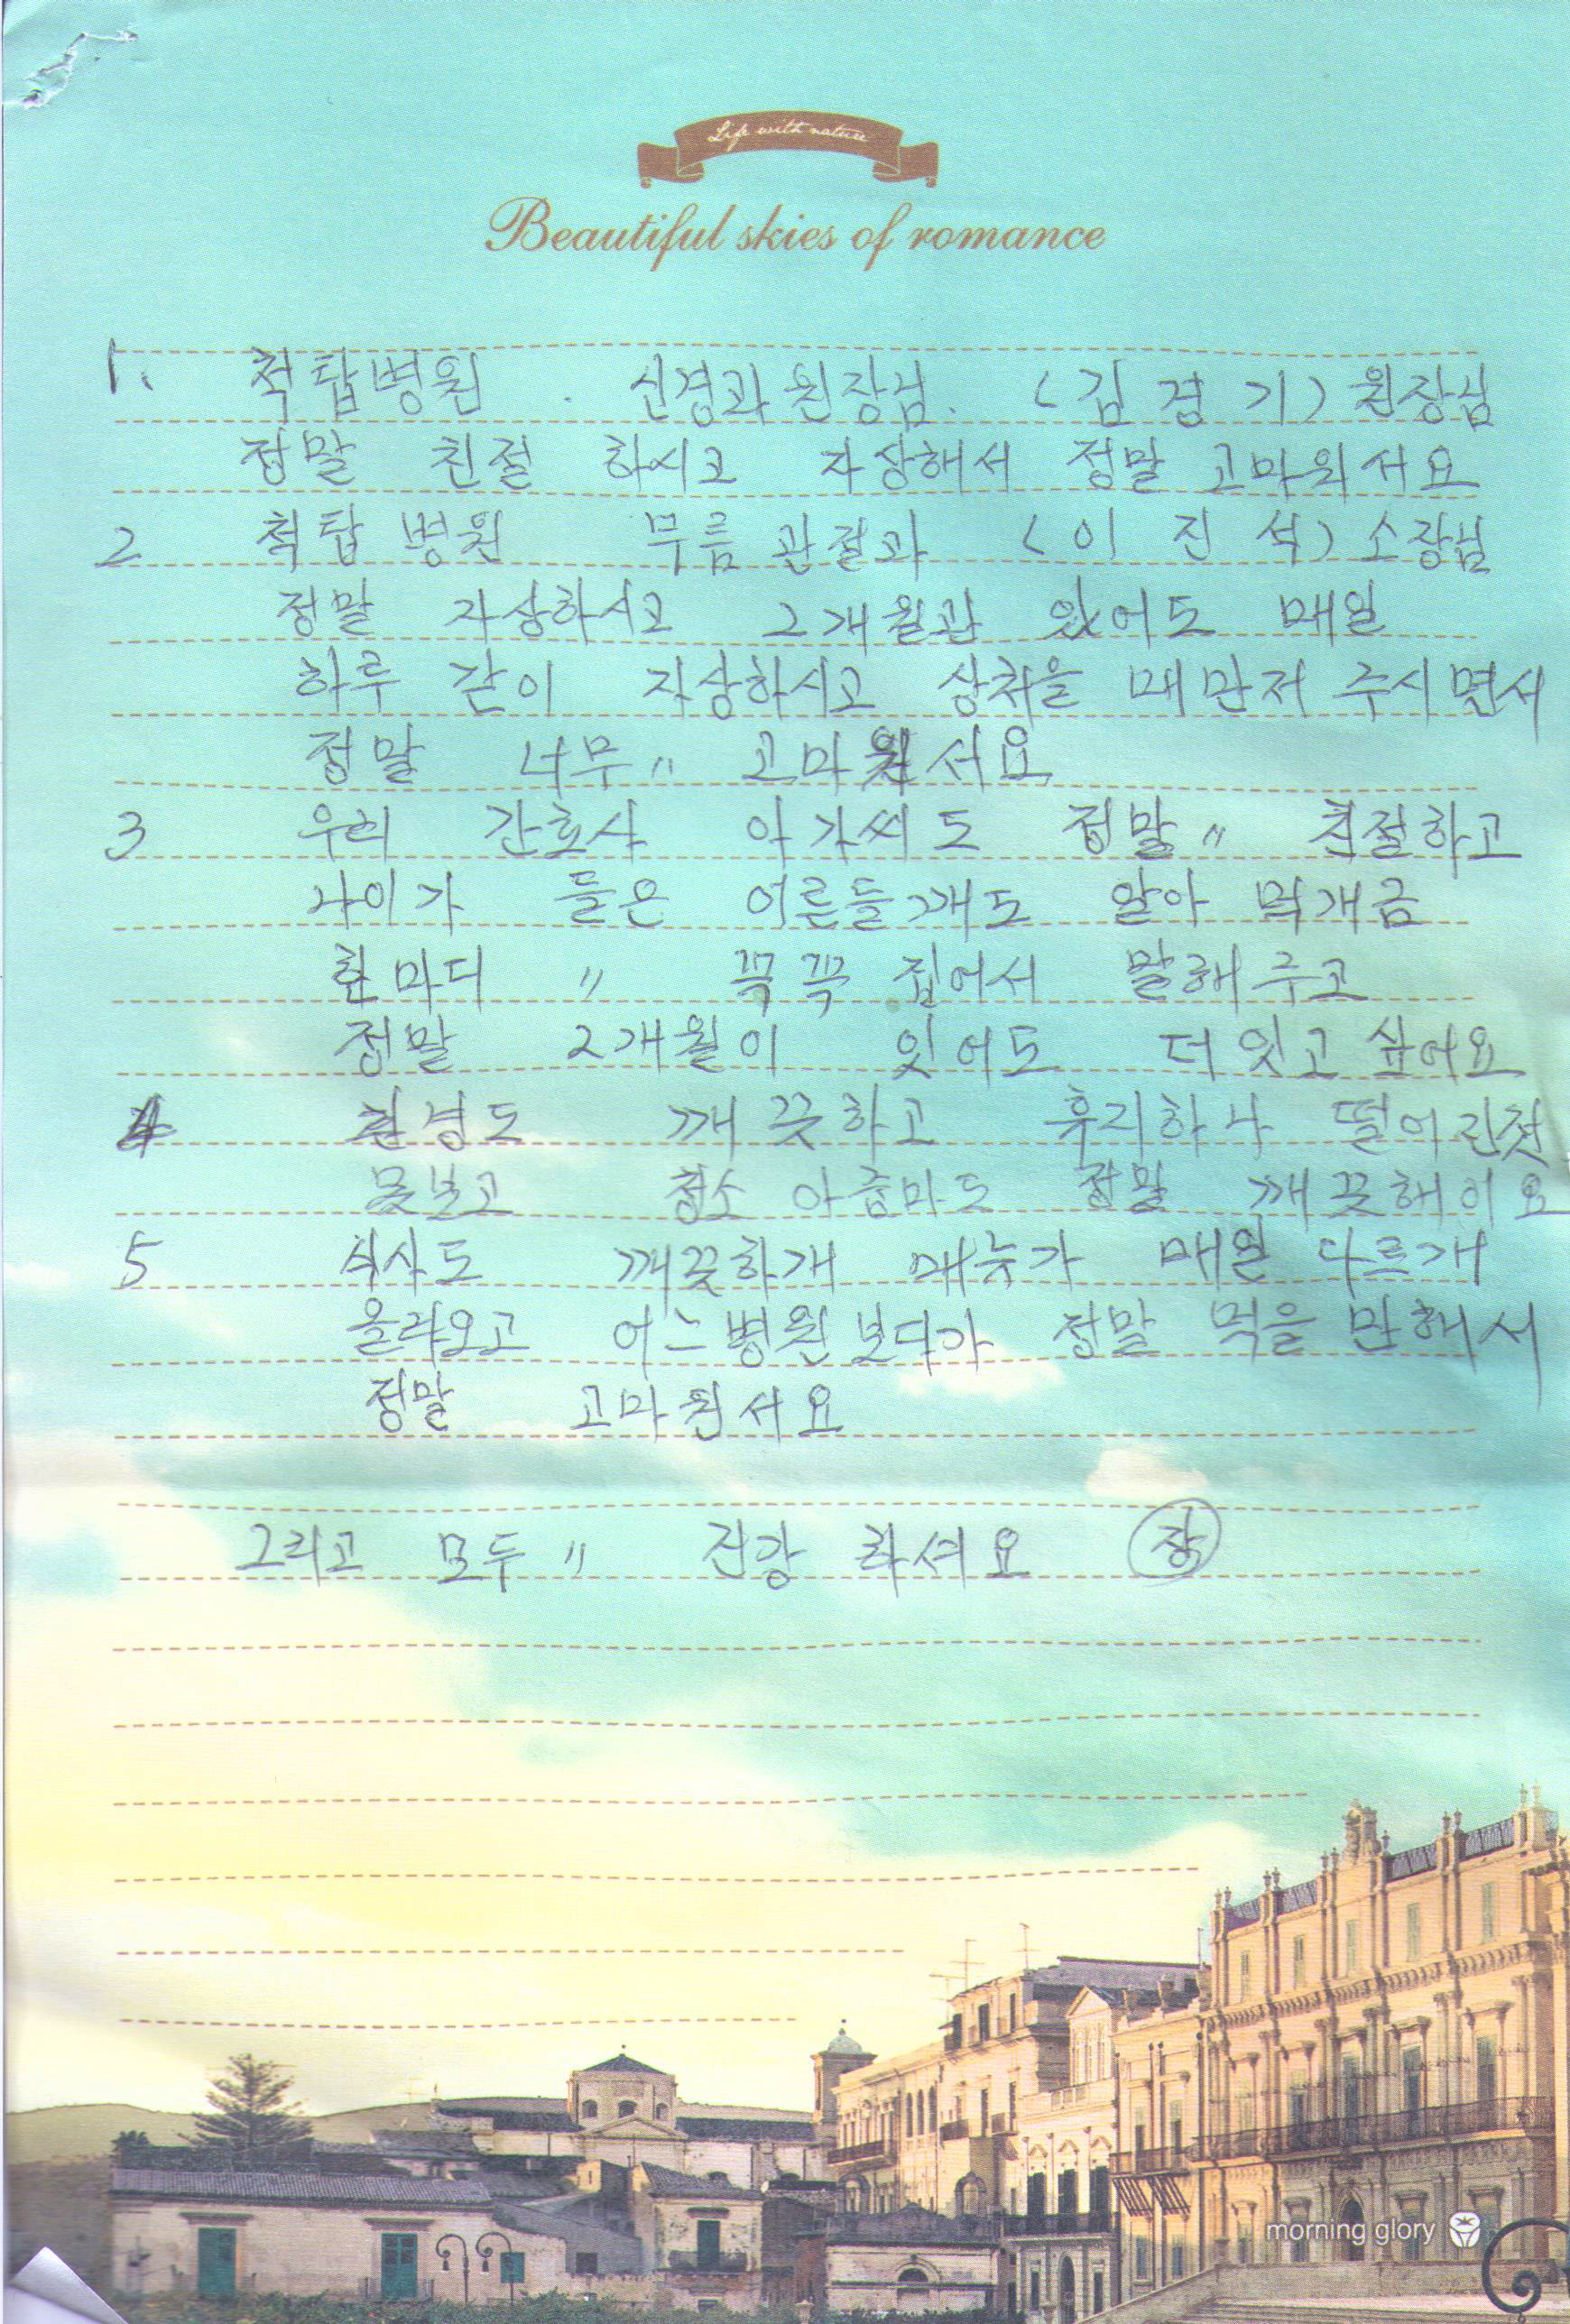 Life with nature
Beautiful skies of romance
1. 척탑병원 . 신경과 원장님. (김 경 기) 원장님
정말 친절 하시고 자상해서 정말 고마워서요
2 척탑 병원 무릎 관절과 (이 진 석) 소장님
정말 자상하시고 2개월관 있어도 매일
하루 같이 자상하시고 상처을 매만저 주시면서
정말 너무〃 고마워서요
3 우리 간호사 아가씨도 정말〃 친절하고
나이가 들은 어른들깨도 알아 먹개금
한마디 〃 끅끅 집어서 말해주고
정말 2개월이 잇어도 더 잇고 싶어요
4 환경도 깨끗하고 휴지하나 떨어진것
못보고 청소 아줌마도 정말 깨끗해이요
5 식사도 깨끗하개 매뉴가 매일 다르개
올라오고 어느병원보다가 정말 먹을만해서
정말 고마원서요
그리고 모두〃 건강 하셔요 장
morning glory